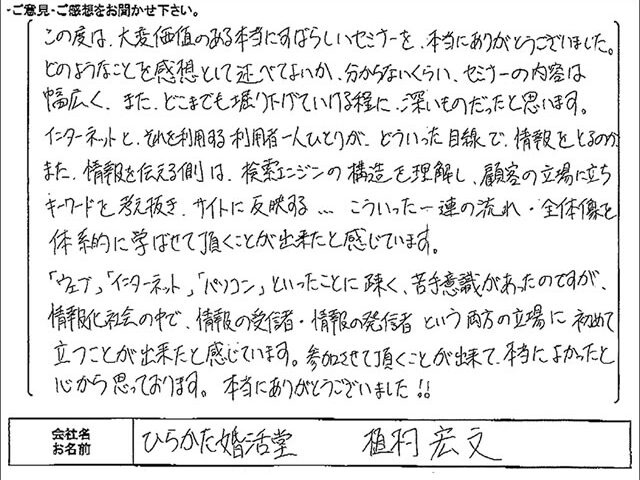 ・ご意見・ご感想をお聞かせ下さい。
この度は、大変価値のある本当にすばらしいセミナーを、本当にありがとうございました。
どのようなことを感想として述べてよいか、分からないくらい、セミナーの内容は
幅広く、また、どこまでも掘り下げていける程に、深いものだったと思います。
インターネットと、それを利用する利用者一人ひとりが、どういった目線で、情報をとるのか
また、情報を伝える側は、検索エンジンの構造を理解し、顧客の立場に立ち
キーワードを考え抜き、サイトに反映する…こういった一連の流れ・全体像を
体系的に学ばせて頂くことが出来たと感じています。
「ウェブ」、「インターネット」、「パソコン」といったことに疎く、苦手意識があったのですが、
情報化社会の中で、情報の受信者・情報の発信者という両方の立場に初めて
立つことが出来たと感じています。参加させて頂くことが出来て、本当によかったと
心から思っております。本当にありがとうございました!!
会社名
お名前
ひらかた婚活堂 植村宏文